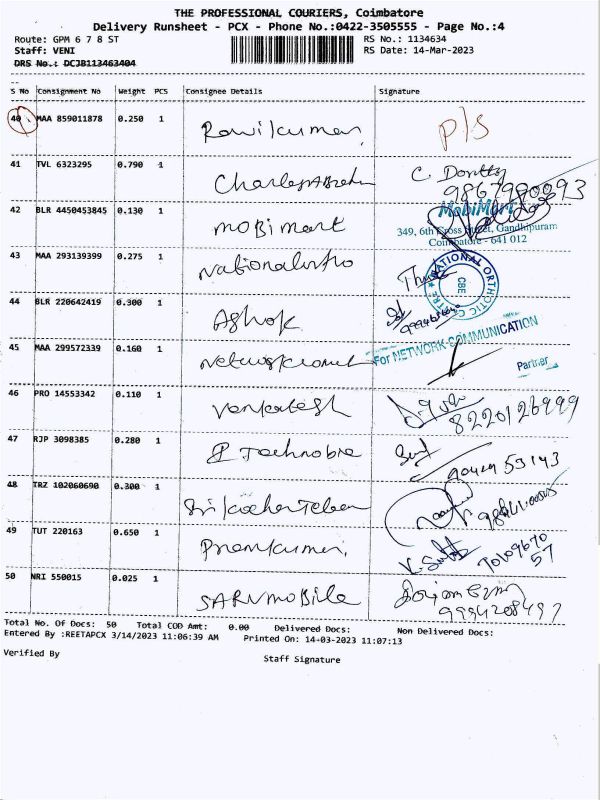 THE PROFESSIONAL COURIERS, Coimbatore
Delivery Runsheet - PCX - Phone No.:0422-3505555 - Page No.:4
Route: GPM 6 7 8 ST RS No.: 1134634
Staff: VENI RS Date: 14-Mar-2023
DRS No.: DCJB113463404
S No Consignment No Weight PCS Consignee Details Signature
40 MAA 859011878 0.250 1 Ravikumar P/S
41 TVL 6323295 0.790 1 C.
9867990093
42 BLR 4450453845 0.130 1 mobimart MobiMart
349, 6th Cross Street, Gandhipuram
Coimbatore - 641 012
43 MAA 293139399 0.275 1 NATIONAL ORTHOTIC CENTRE CBE
44 BLR 220642419 0.300 1 Ashok
45 MAA 299572339 0.160 1 For NETWORK COMMUNICATION
Partner
46 PRO 14553342 0.110 1 Venkatesh 8220126999
47 RJP 3098385 0.280 1
48 TRZ 102060690 0.300 1
49 TUT 220163 0.650 1 Premkumar
50 NRI 550015 0.025 1 SARV mobile
Total No. Of Docs: 50 Total COD Amt: 0.00 Delivered Docs: Non Delivered Docs:
Entered By :REETAPCX 3/14/2023 11:06:39 AM Printed On: 14-03-2023 11:07:13
Verified By Staff Signature